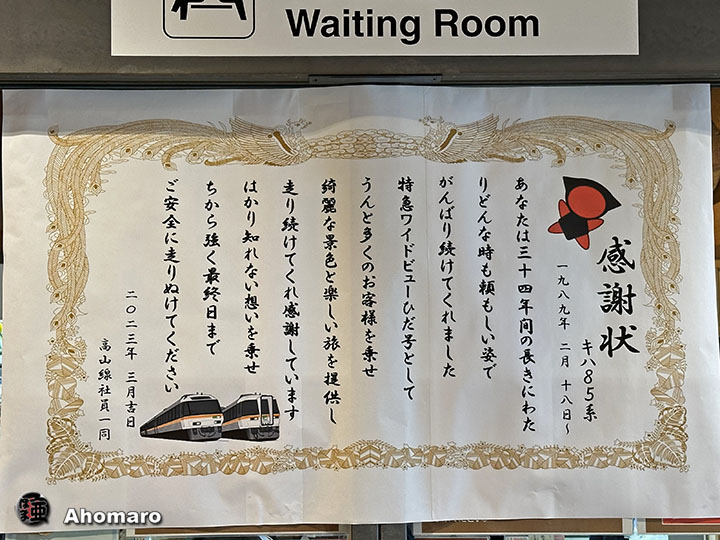 Waiting Room
感謝状
キハ85系
一九八九年 二月 十八日～
あなたは三十四年間の長きにわた
りどんな時も頼もしい姿で
がんばり続けてくれました
特急ワイドビューひだ号として
うんと多くのお客様を乗せ
綺麗な景色と楽しい旅を提供し
走り続けてくれ感謝しています
はかり知れない想いを乗せ
ちから強く最終日まで
ご安全に走りぬけてください
二〇二三年 三月吉日
高山線社員一同
Ahomaro